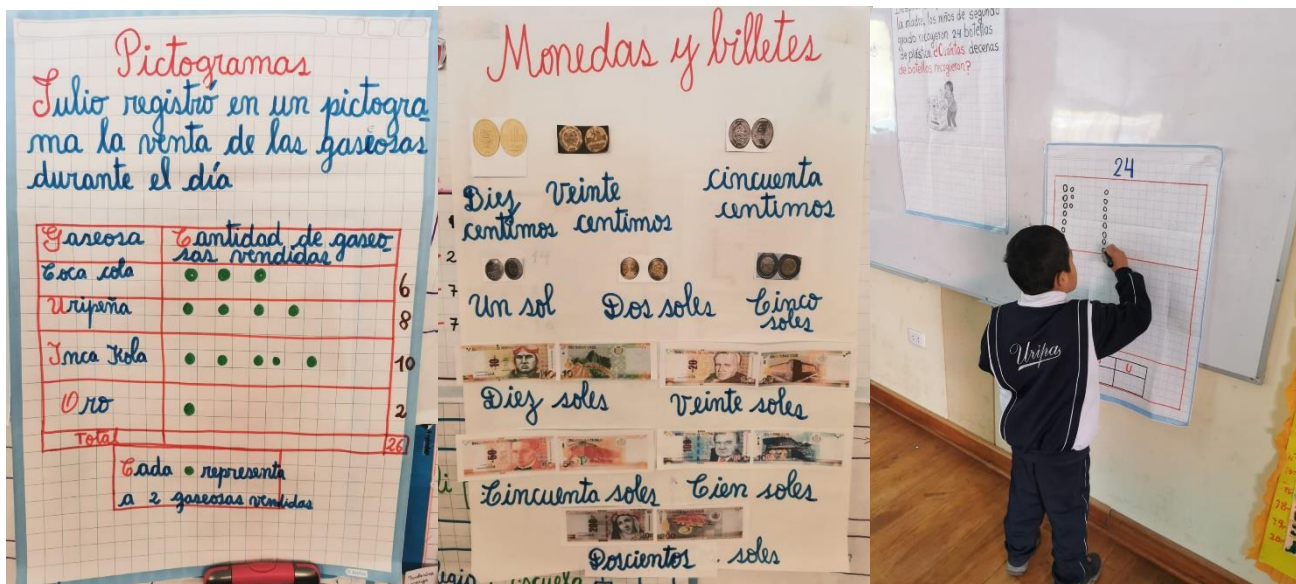 Pictogramas
Julio registró en un pictogra
ma la venta de las gaseosas
durante el día
Gaseosa Cantidad de gaseo-
sas vendidas
Coca cola 6
Uripeña 8
Inca Kola 10
Oro 2
Total 26
Cada representa
a 2 gaseosas vendidas
Monedas y billetes
Diez
centimos
Veinte
centimos
cincuenta
centimos
Un sol
Dos soles
Cinco
soles
Diez soles
Veinte soles
Cincuenta soles
Cien soles
Doscientos soles
la madre, los niños de segundo
grado recogieron 24 botellas
de plástico ¿Cuántas decenas
de botellas recogieron?
24
U
Uripa